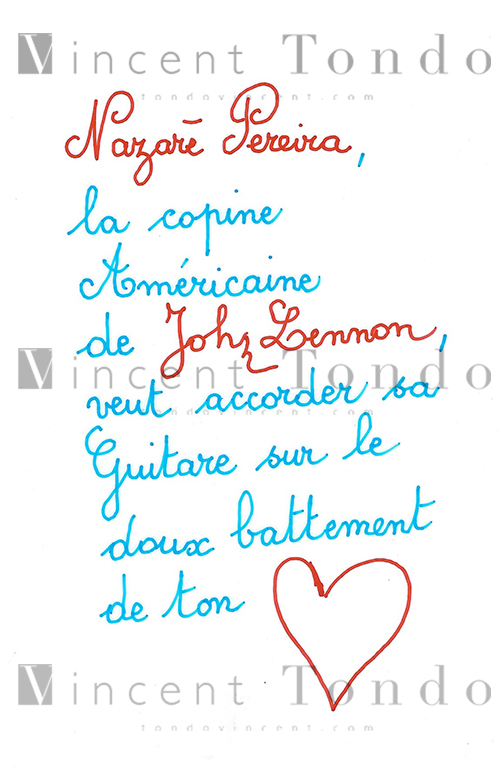 Vincent Tondo
tondovincent.com
Nazaré Pereira,
la copine
Américaine
de John Lennon,
Vincent Tondo
veut accorder sa
tondovincent.com
Guitare sur le
doux battement
de ton
Vincent Tondo
tondovincent.com